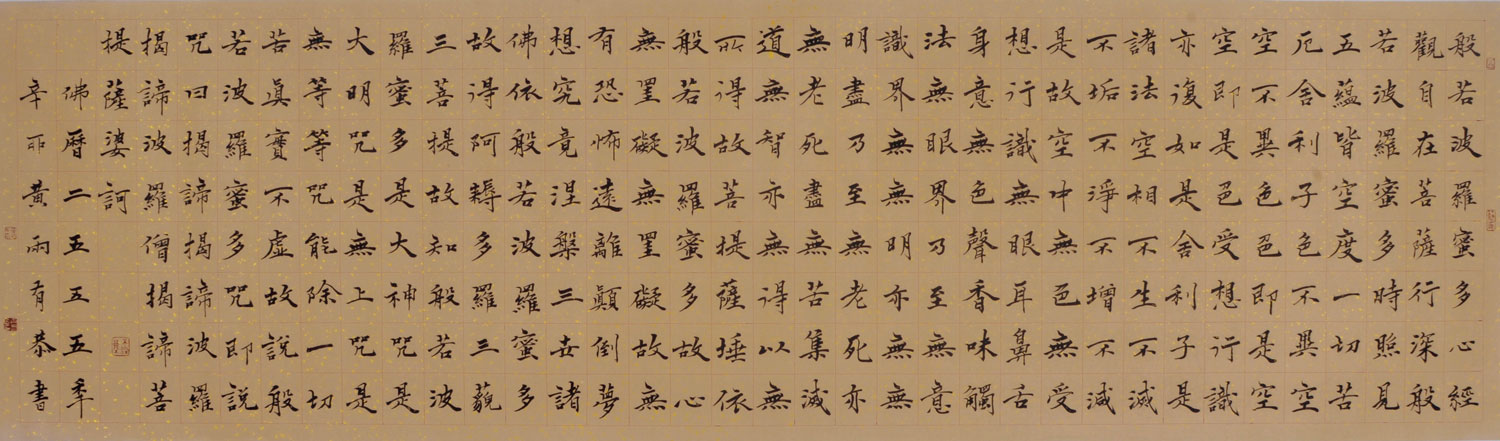 般若波羅蜜多心經
觀自在菩薩行深般
若波羅蜜多時照見
五蘊皆空度一切苦
厄舍利子色不異空
空不異色色即是空
空即是色受想行識
亦復如是舍利子是
諸法空相不生不滅
不垢不淨不增不減
是故空中無色無受
想行識無眼耳鼻舌
身意無色聲香味觸
法無眼界乃至無意
識界無無明亦無無
明盡乃至無老死亦
無老死盡無苦集滅
道無智亦無得以無
所得故菩提薩埵依
般若波羅蜜多故心
無罣礙無罣礙故無
有恐怖遠離顛倒夢
想究竟涅槃三世諸
佛依般若波羅蜜多
故得阿耨多羅三藐
三菩提故知般若波
羅蜜多是大神咒是
大明咒是無上咒是
無等等咒能除一切
苦眞實不虛故說般
若波羅蜜多咒即說
咒曰揭諦揭諦波羅
揭諦波羅僧揭諦菩
提薩婆訶
佛曆二五五五秊
辛卯黃雨有恭書